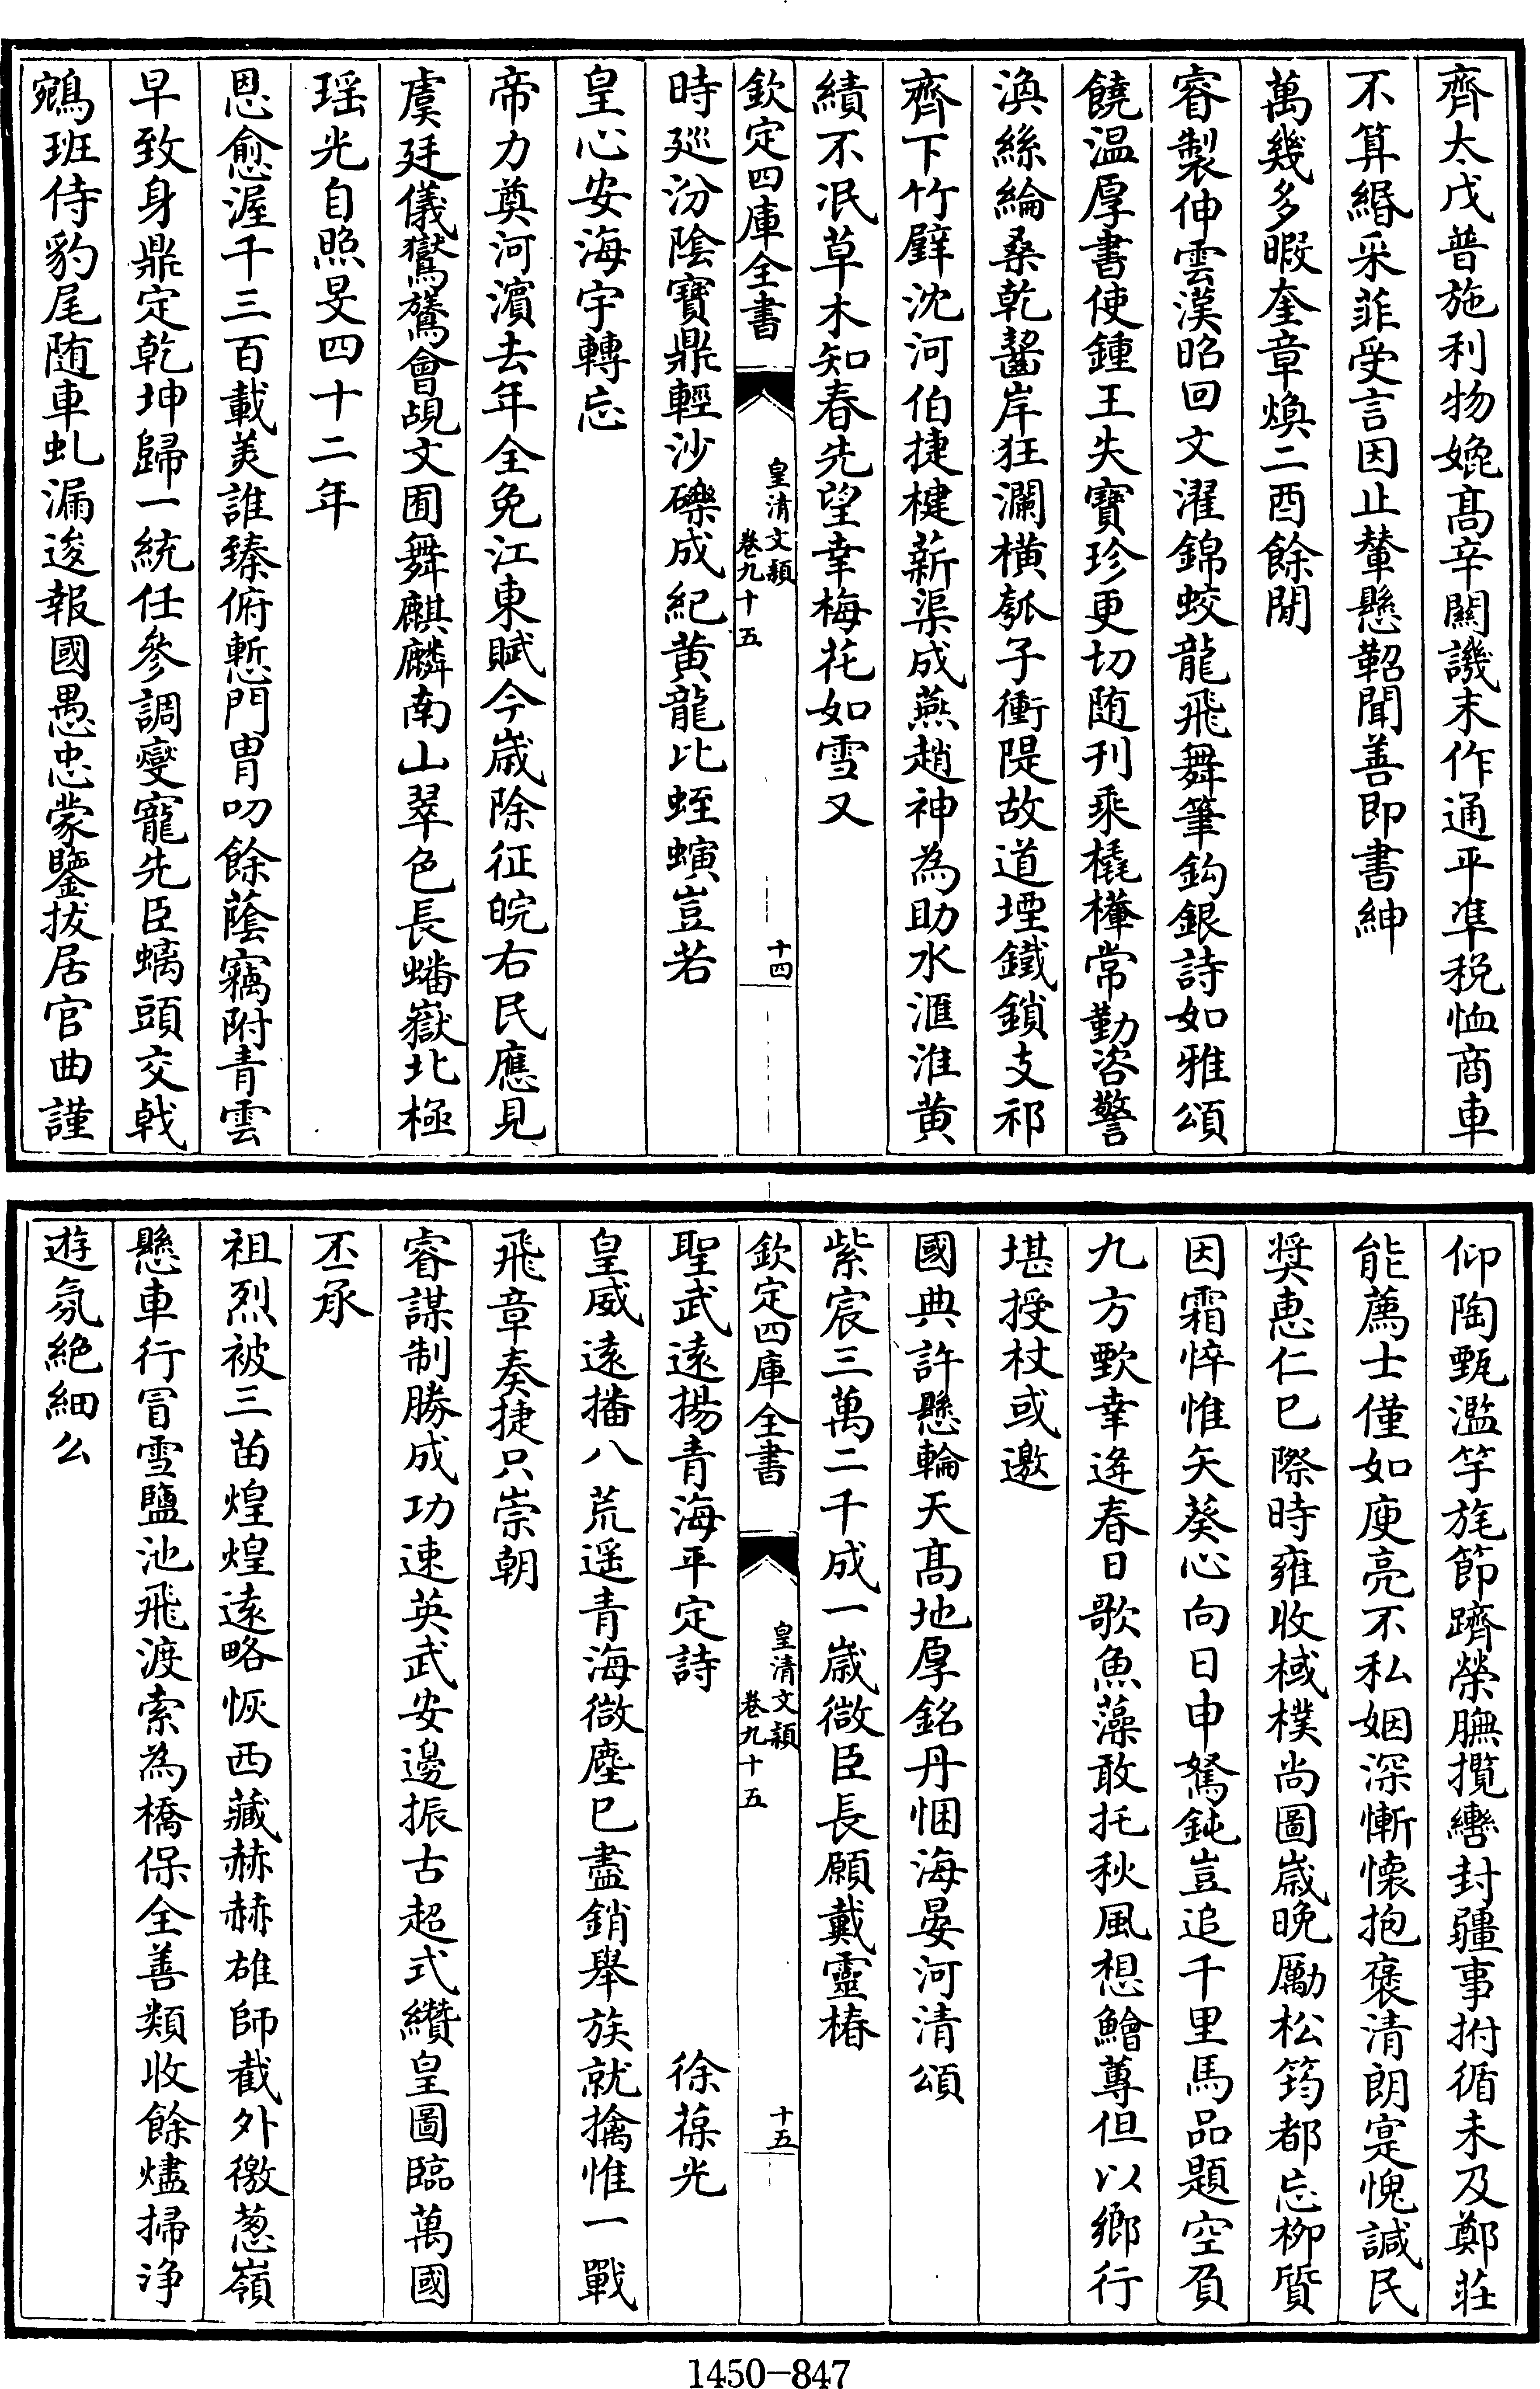 齊太戊普施利物媲髙辛闗譏末作通平凖税恤商車
不算緡采菲受言因止輦懸鞀聞善即書紳
萬幾多暇奎章煥二酉餘閒
睿製伸雲漢昭回文濯錦蛟龍飛舞筆鈎銀詩如雅頌
饒温厚書使鍾王失寶珍更切随刋乘橇樺常勤咨警
渙絲綸桑乾齧岸狂瀾横瓠子衝隄故道堙鐵鎖支祁
齊下竹璧沈河伯捷楗薪渠成燕趙神為助水滙淮黄
績不泯草木知春先望幸梅花如雪又
欽定四庫全書
皇清文穎
卷九十五
十四
時廵汾隂寶鼎輕沙礫成紀黄龍比蛭螾豈若
皇心安海宇轉忘
帝力奠河濵去年全免江東賦今歲除征皖右民應見
虞廷儀鸑鷟會覘文囿舞麒麟南山翠色長蟠嶽北極
瑶光自照旻四十二年
恩愈渥千三百載羙誰臻俯慙門胄叨餘蔭竊附青雲
早致身鼎定乾坤歸一統任參調燮寵先臣螭頭交戟
鵷班侍豹尾随車虬漏逡報國愚忠蒙鑒拔居官曲謹
仰陶甄濫竽旄節躋榮膴攬轡封疆事拊循未及鄭莊
能薦士僅如庾亮不私姻深慚懐抱褒清朗寔愧諴民
奨惠仁已際時雍收棫樸尚圖歲晚勵松筠都忘栁質
因霜悴惟矢葵心向日申駑鈍豈追千里馬品題空負
九方歅幸逄春日歌魚藻敢托秋風想鱠蓴但以鄉行
堪授杖或邀
國典許懸輪天髙地厚銘丹悃海晏河清頌
紫宸三萬二千成一歲微臣長願戴靈椿
欽定四庫全書
皇清文穎
卷九十五
十五
聖武遠揚青海平定詩 徐葆光
皇威遠播八荒遥青海微塵已盡銷舉族就擒惟一戰
飛章奏捷只崇朝
睿謀制勝成功速英武安邊振古超式纘皇圖臨萬國
丕承
祖烈被三苗煌煌遠略恢西藏赫赫雄師截外徼葱嶺
懸車行冒雪鹽池飛渡索為橋保全善類收餘燼掃浄
遊氛絶細么
1450-847